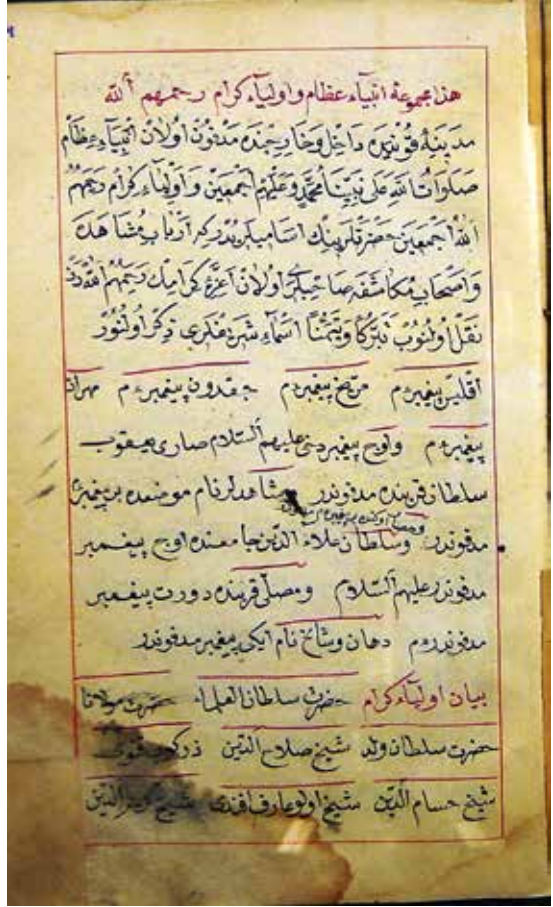 هذا مجموعهٔ انبياء عظام و اولياء كرام رحمهم الله
مدينهٔ قونيه ده داخل و خارجنده مدفون اولان انبياء عظام
صلوات الله على نبينا محمد و عليهم اجمعين و اولياء كرام رحمهم
الله اجمعين حضرتلرينك اساميلريدر كه ارباب مشاهده
و اصحاب مكاشفه صاحبلرى اولان اعزهٔ كرامك رحمهم الله دن
نقل اولنوب تبركا و تيمنا اسماء شريفلرى ذكر اولنور
اقليس پيغمبر م مريخ پيغمبر م جقدون پيغمبر م مهران
پيغمبر م و اوچ پيغمبر دخى عليهم السلام صارى يعقوب
سلطان قربنده مدفوندر مشاهدلر نام موضعده بر پيغمبر
مدفوندر و سلطان علاء الدين جامعنده اوچ پيغمبر
مدفوندر عليهم السلام و مصلى قربنده دورت پيغمبر
مدفوندر م دهان و شالخ نام ايكى پيغمبر مدفوندر
بيان اولياء كرام حضرت سلطان العلماء حضرت مولانا
حضرت سلطان ولد شيخ صلاح الدين زركوب قونوى
شيخ حسام الدين شيخ اولو عارف افندى شيخ الدين